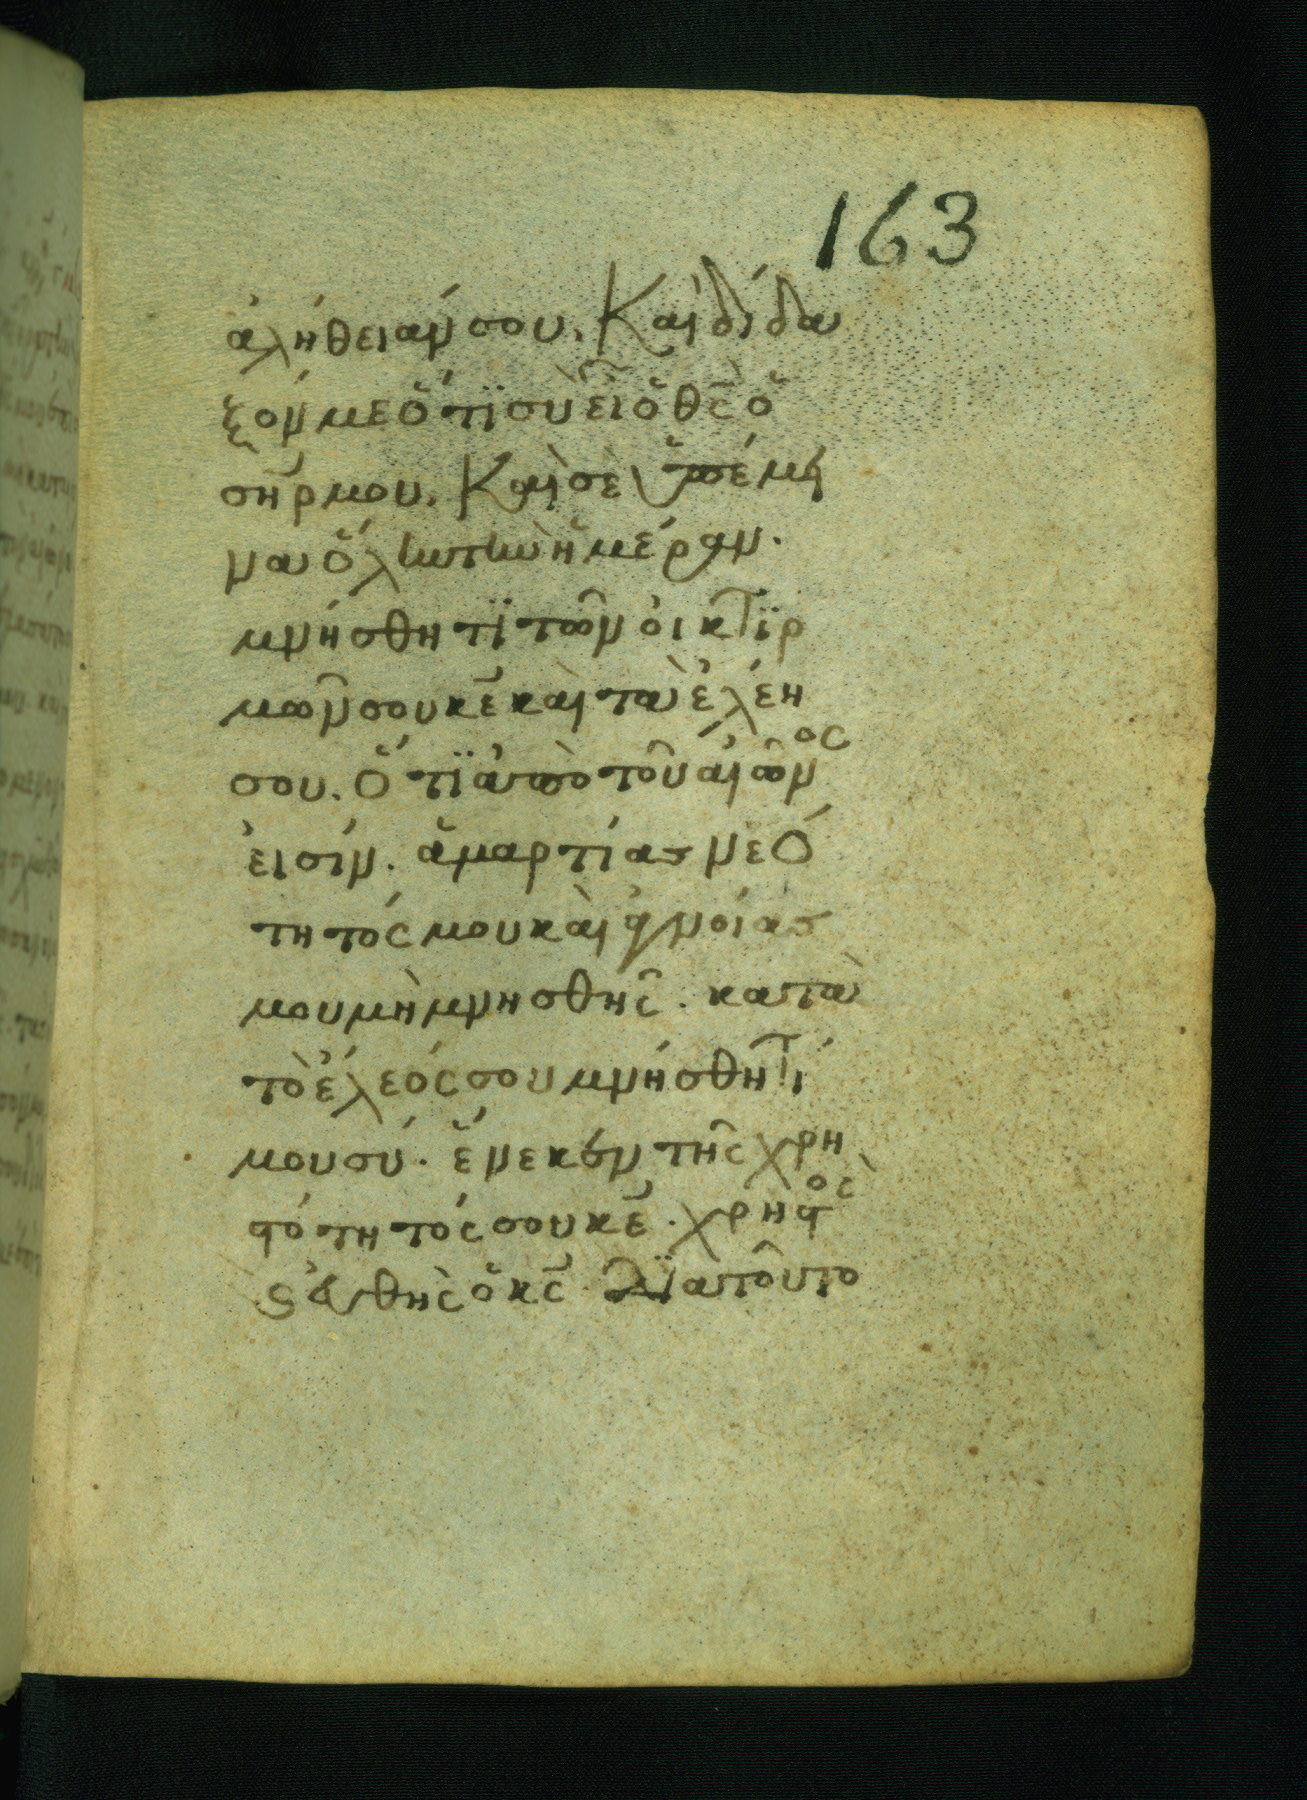 163
ἀλήθειάν σου. Καὶ δίδα
ξόν με ὅτϊ σὺ εἶ ὁ θς̄ ὁ
σηρ̄ μου. Καὶ σὲ ὑπέμει
να ὅλην τὴν ἡμέραν.
μνήσθητϊ τῶν οἰκτϊρ
μῶν σου κε̄ καὶ τὰ ἐλέη
σου. Ὅτϊ ἀπὸ τοῦ αἰῶνος
εἰσίν. ἁμαρτίας νεό
τητός μου καὶ ἀγνοίας
μου μὴ μνησθῆς. κατὰ
τὸ ἔλεός σου μνήσθητί
μου σύ. ἕνεκεν τῆς χρη
στότητός σου κε̄. χρηστὸς
καὶ εὐθὴς ὁ κς̄. Διὰ τοῦτο